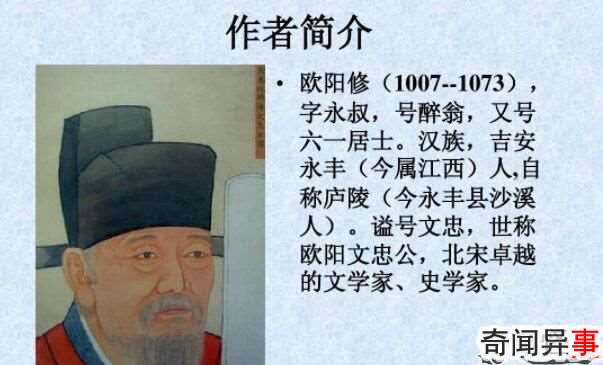 作者简介
• 欧阳修（1007--1073），
字永叔，号醉翁，又号
六一居士。汉族，吉安
永丰（今属江西）人,自
称庐陵（今永丰县沙溪
人）。谥号文忠，世称
欧阳文忠公，北宋卓越
的文学家、史学家。
奇闻异事